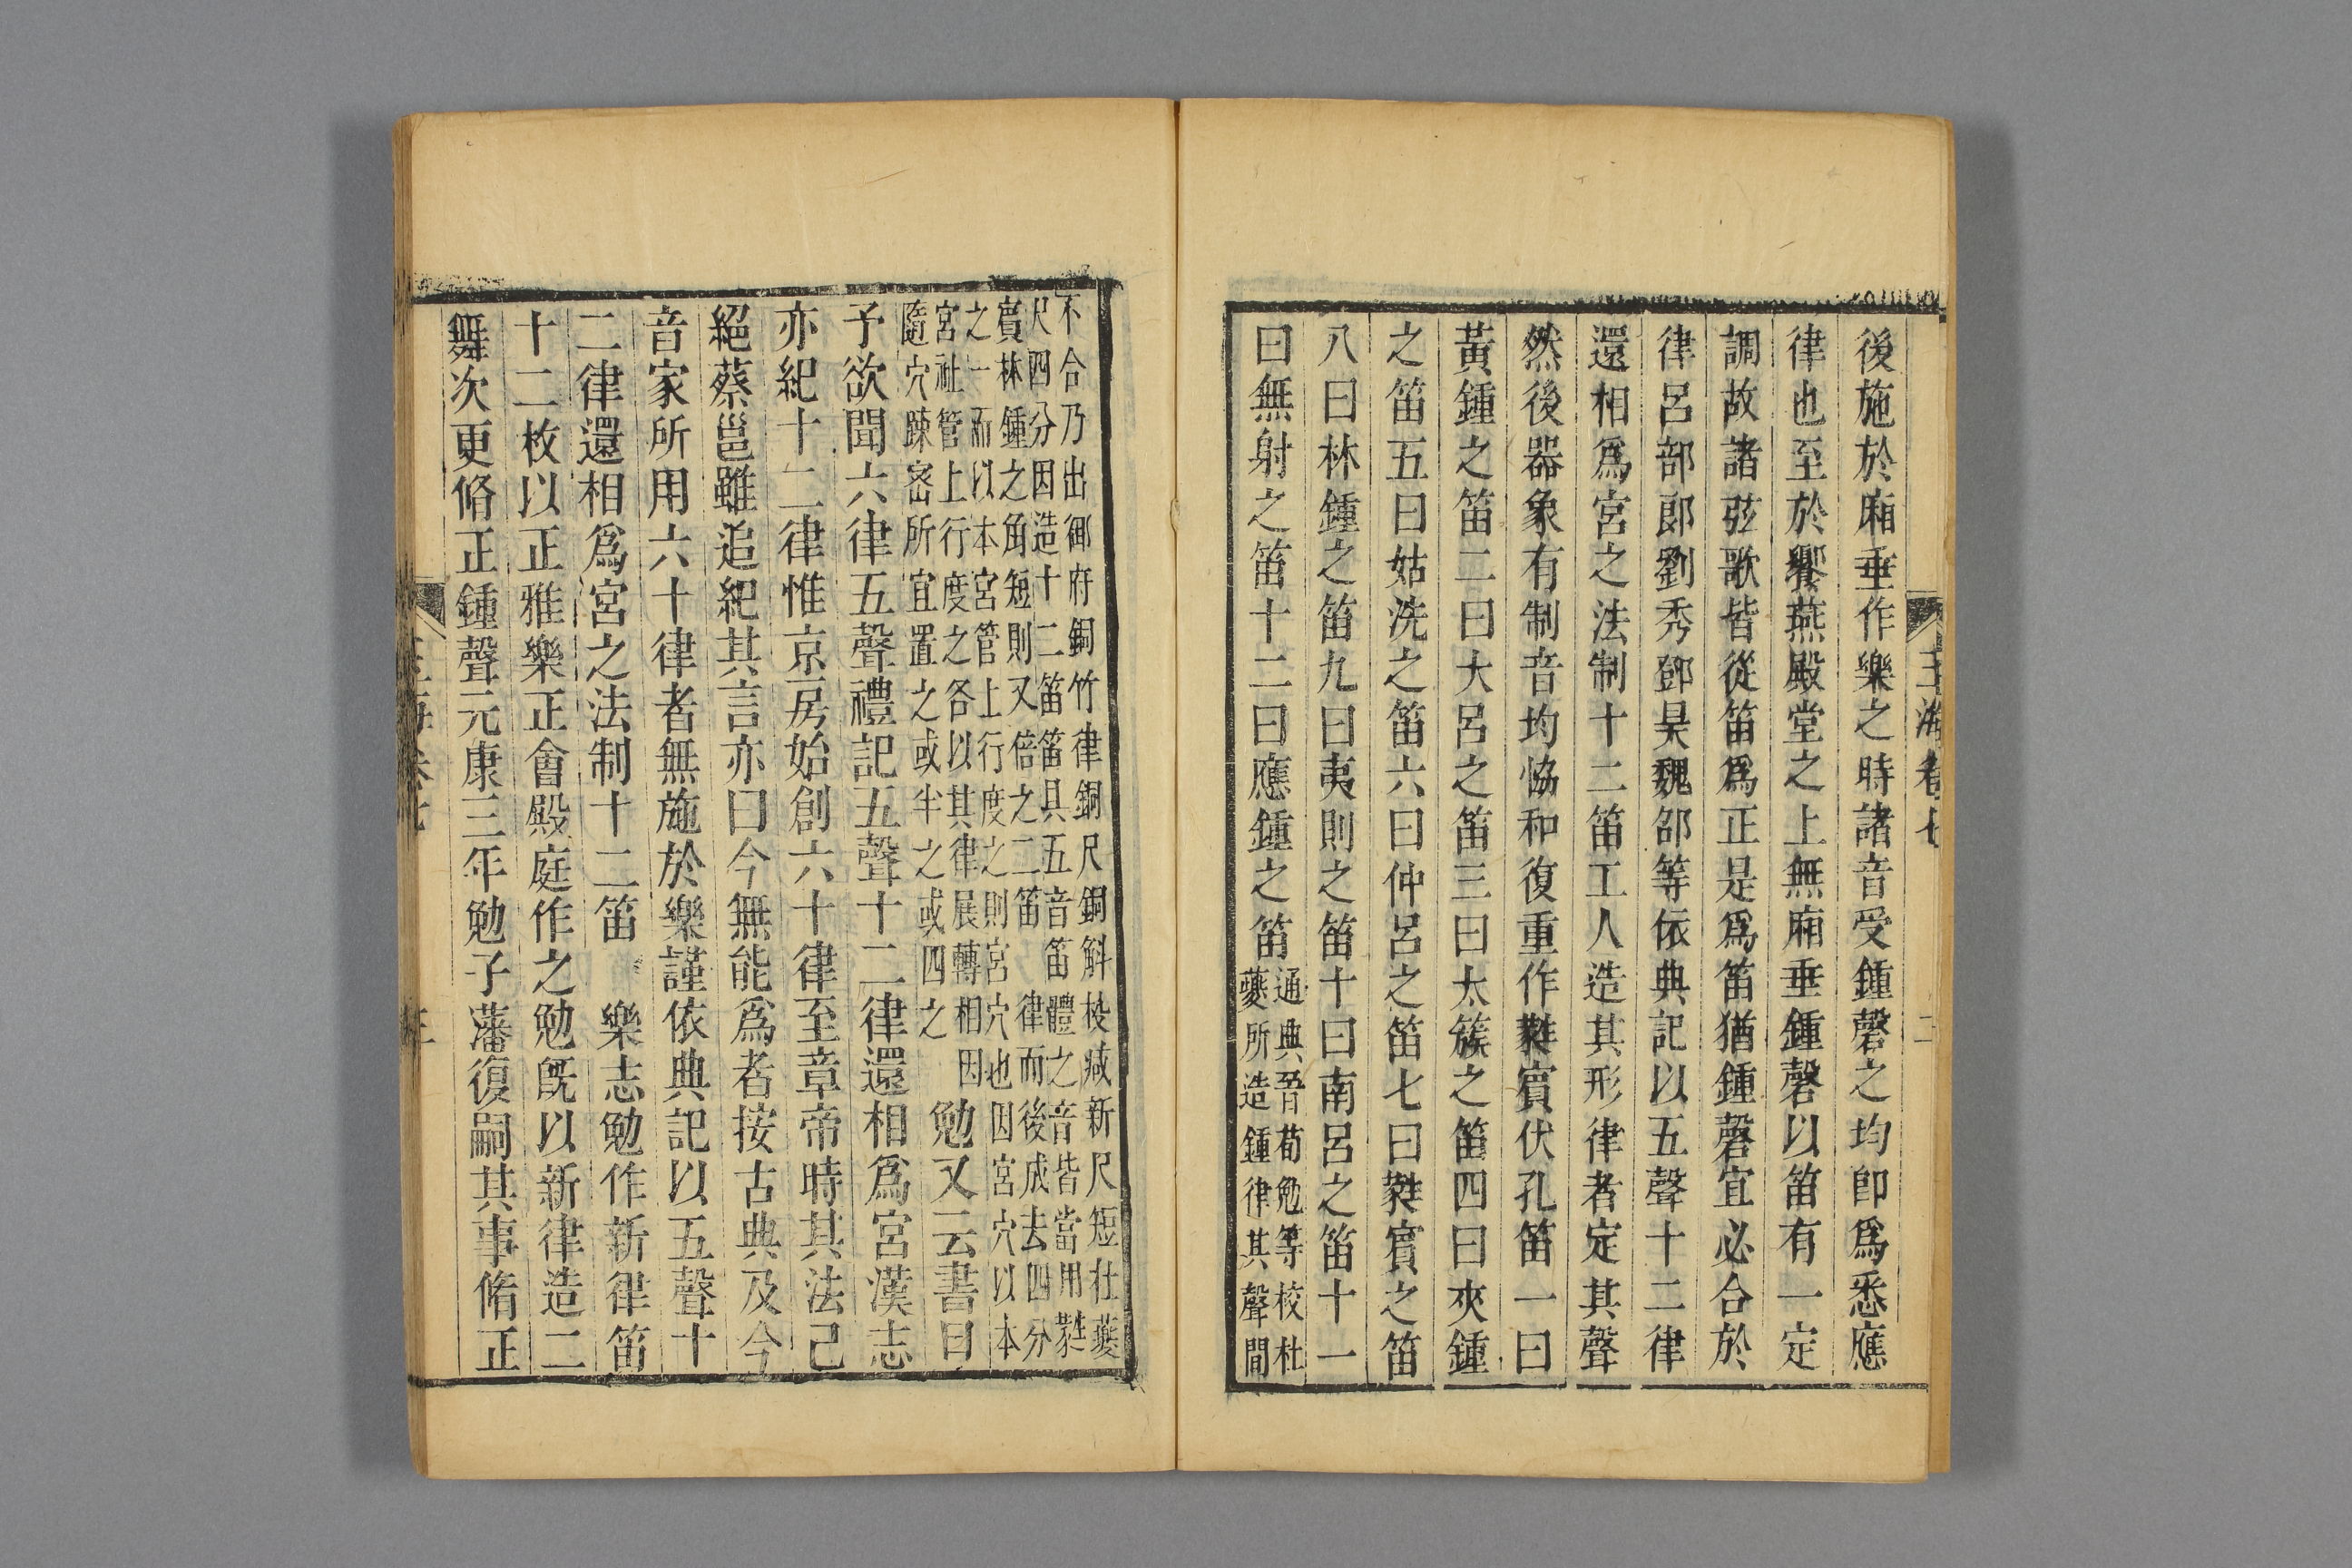 玉海卷七 二
後施於廂垂作樂之時諸音受鍾磬之均卽爲悉應
律也至於饗燕殿堂之上無廂垂鍾磬以笛有一定
調故諸弦歌皆從笛爲正是爲笛猶鍾磬宜必合於
律呂部郎劉秀鄧昊魏邵等依典記以五聲十二律
還相爲宮之法制十二笛工人造其形律者定其聲
然後器象有制音均恊和復重作蕤賓伏孔笛一曰
黃鍾之笛二曰大呂之笛三曰太簇之笛四曰夾鍾
之笛五曰姑洗之笛六曰仲呂之笛七曰蕤賓之笛
八曰林鍾之笛九曰夷則之笛十曰南呂之笛十一
曰無射之笛十二曰應鍾之笛
通典晉荀勉等校杜
夔所造鍾律其聲間
不合乃出御府銅竹律銅尺銅斛校臧新尺短杜夔
尺四分因造十二笛笛具五音笛體之音皆當用蕤
賓林鍾之角短則又倍之二笛律而後成去四分
之一而以本宮管上行度之則宮穴也因宮穴以本
宮祉管上行度之各以其律展轉相因
隨穴踈宻所宜置之或半之或四之
勉又云書曰
予欲聞六律五聲禮記五聲十二律還相爲宮漢志
亦紀十二律惟京房始創六十律至章帝時其法已
絕蔡邕雖追紀其言亦曰今無能爲者按古典及今
音家所用六十律者無施於樂謹依典記以五聲十
二律還相爲宮之法制十二笛 樂志勉作新律笛
十二枚以正雅樂正會殿庭作之勉旣以新律造二
舞次更脩正鍾聲元康三年勉子藩復嗣其事脩正
玉海卷七 三